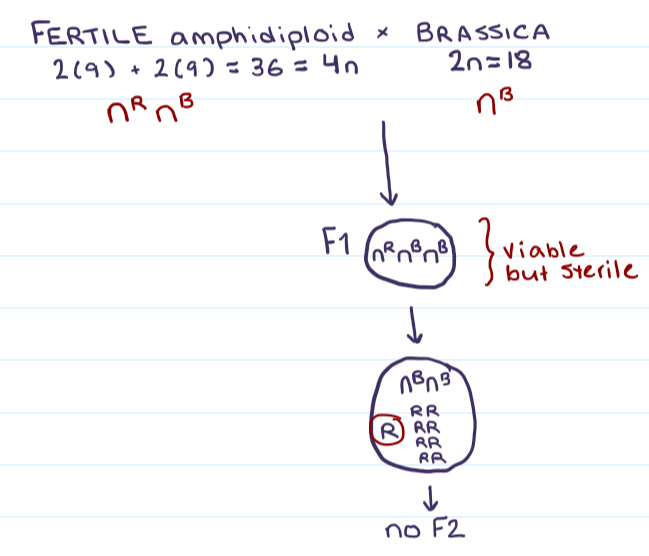 FERTILE amphidiploid × BRASSICA
2(9) + 2(9) = 36 = 4n 2n=18
nᴿ nᴮ nᴮ
F1 nᴿnᴮnᴮ } viable
but sterile
nᴮnᴮ
RR
R RR
RR
RR
no F2